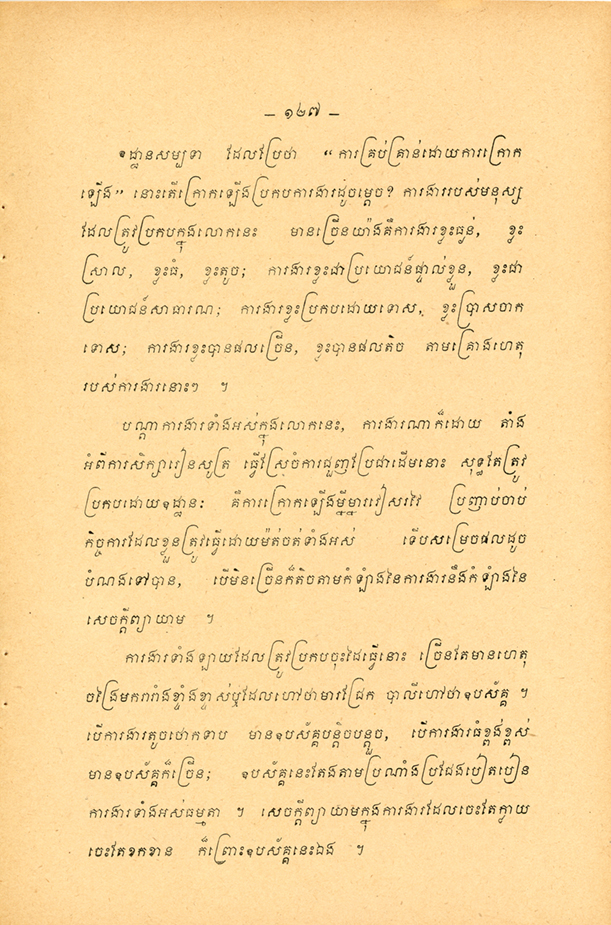 — ១២៧ —
ឧដ្ឋានសម្បទា ដែលប្រែថា “ការគ្រប់គ្រាន់ដោយការក្រោក
ឡើង” នោះតើក្រោកឡើងប្រកបការងារដូចម្ដេច? ការងាររបស់មនុស្ស
ដែលត្រូវប្រកបក្នុងលោកនេះ មានច្រើនយ៉ាងគឺការងារខ្លះធ្ងន់, ខ្លះ
ស្រាល, ខ្លះធំ, ខ្លះតូច; ការងារខ្លះជាប្រយោជន៍ផ្ទាល់ខ្លួន, ខ្លះជា
ប្រយោជន៍សាធារណ; ការងារខ្លះប្រកបដោយទោស, ខ្លះប្រាសចាក
ទោស; ការងារខ្លះបានផលច្រើន, ខ្លះបានផលតិច តាមគ្រោងហេតុ
របស់ការងារនោះៗ ។
បណ្ដាការងារទាំងអស់ក្នុងលោកនេះ, ការងារណាក៏ដោយ តាំង
អំពីការសិក្សារៀនសូត្រ ធ្វើស្រែចំការជួញប្រែជាដើមនោះ សុទ្ធតែត្រូវ
ប្រកបដោយឧដ្ឋានៈ គឺការក្រោកឡើងម្នីម្នារវៀសរវៃ ប្រញាប់ចាប់
កិច្ចការដែលខ្លួនត្រូវធ្វើដោយម៉ត់ចត់ទាំងអស់ ទើបសម្រេចផលដូច
បំណងទៅបាន, បើមិនច្រើនក៏តិចតាមកំឡាំងនៃការងារនឹងកំឡាំងនៃ
សេចក្ដីព្យាយាម ។
ការងារទាំងឡាយដែលត្រូវប្រកបចុះដៃធ្វើនោះ ច្រើនតែមានហេតុ
ចង្រៃមករារាំងខ្ទាំងខ្ទាស់ឬដែលហៅថាមារជ្រែក បាលីហៅថាឧបស័គ្គ ។
បើការងារតូចថោកទាប មានឧបស័គ្គបន្តិចបន្តួច, បើការងារធំខ្ពង់ខ្ពស់
មានឧបស័គ្គក៏ច្រើន; ឧបស័គ្គនេះតែងតាមប្រណាំងប្រជែងបៀតបៀន
ការងារទាំងអស់ធម្មតា ។ សេចក្ដីព្យាយាមក្នុងការងារដែលចេះតែក្លាយ
ចេះតែខកខាន ក៏ព្រោះឧបស័គ្គនេះឯង ។